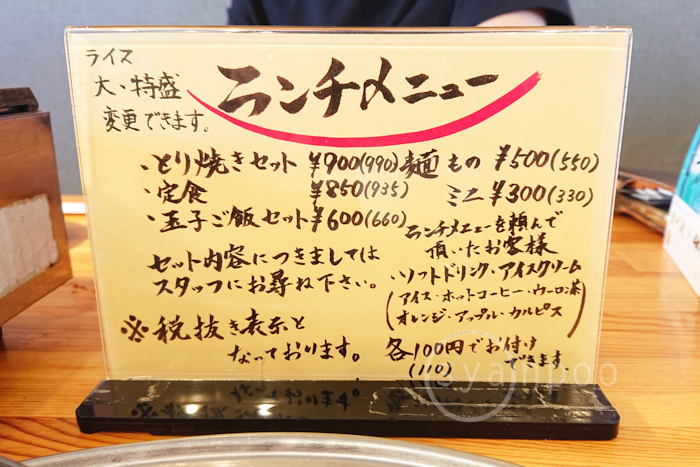 ライス
大、特盛
変更できます。
ランチメニュー
・とり焼きセット ¥900(990)
・定食 ¥850(935)
・玉子ご飯セット ¥600(660)
麺もの ¥500(550)
ミニ ¥300(330)
セット内容につきましては
スタッフにお尋ね下さい。
※税抜き表示と
なっております。
ランチメニューを頼んで
頂いたお客様
・ソフトドリンク・アイスクリーム
(アイス・ホットコーヒー・ウーロン茶
オレンジ・アップル・カルピス)
各100円でお付け
(110) できます。